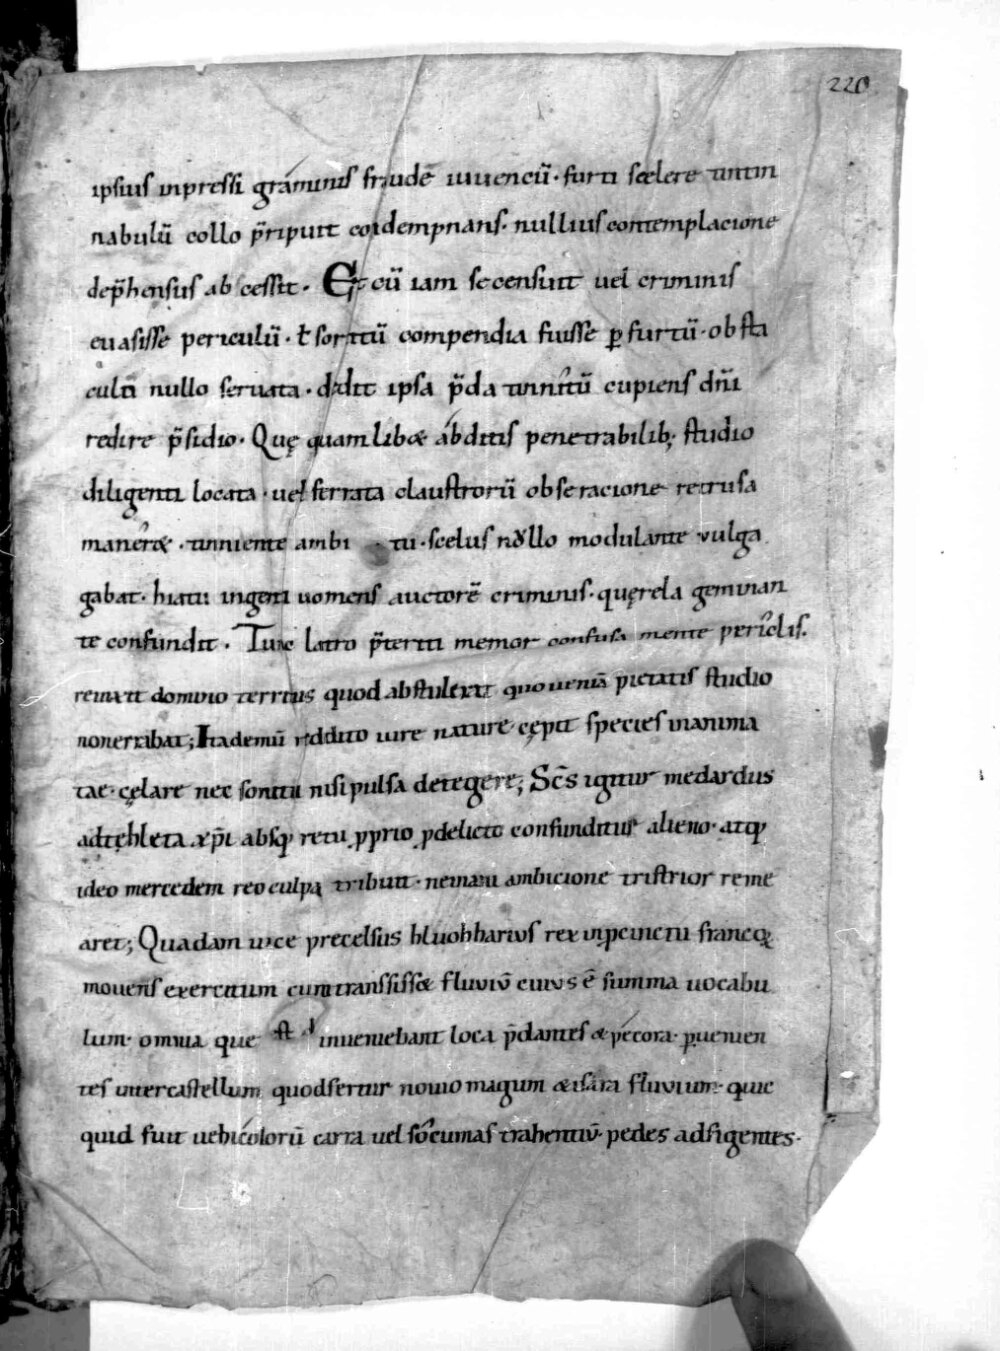 220
ipsius inpressi graminis fraudē iuuencū · furti scelere tintin
nabulū collo p̄ripuit condempnans · nullius contemplacione
dep̄hensus abcessit · Et cū iam se censuit uel criminis
euasisse periculū · ł sortitū compendia fuisse ꝑ furtū · obsta
culi nullo seruata · dedit ipsa p̄da tinnitū cupiens dn̄i
redire p̄sidio · Quę quamlib& abditis penetrabilib; studio
diligenti locata · uel ferrata claustrorū obseracione retrusa
maner& · tinniente ambi tu · scelus nullo modulante vulga
gabat · hiatu ingenti uomens auctorē criminis · quęrela geminan
te confundit · Tunc latro p̄teriti memor confusa mente periclis ·
domino territus quod abstulerat quo ueniā pietatis studio
non errabat; Itademū reddito iure nature cępit species inanima
tae · cęlare nec sonitu nisi pulsa detegere; Scs̄ igitur medardus
adtęhleta xp̄i absq; retu ꝓprio ꝓ delicto confunditur alieno · atq;
ideo mercedem reo culpę tribuit · ne inani ambicione tristior reme
aret; Quadam uice precelsus hluohharius rex in ꝓcinctu francoꝝ
mouens exercitum cum transsiss& fluuiū cuius ē summa uocabu
lum · omnia que st inueniebant loca p̄dantes & pécora · ꝑuenien
tes inter castellum quod fertur nouiomagum & isara fluuium · quic
quid fuit uehicolorū carra uel socumas trahentiū · pedes adfigentes ·